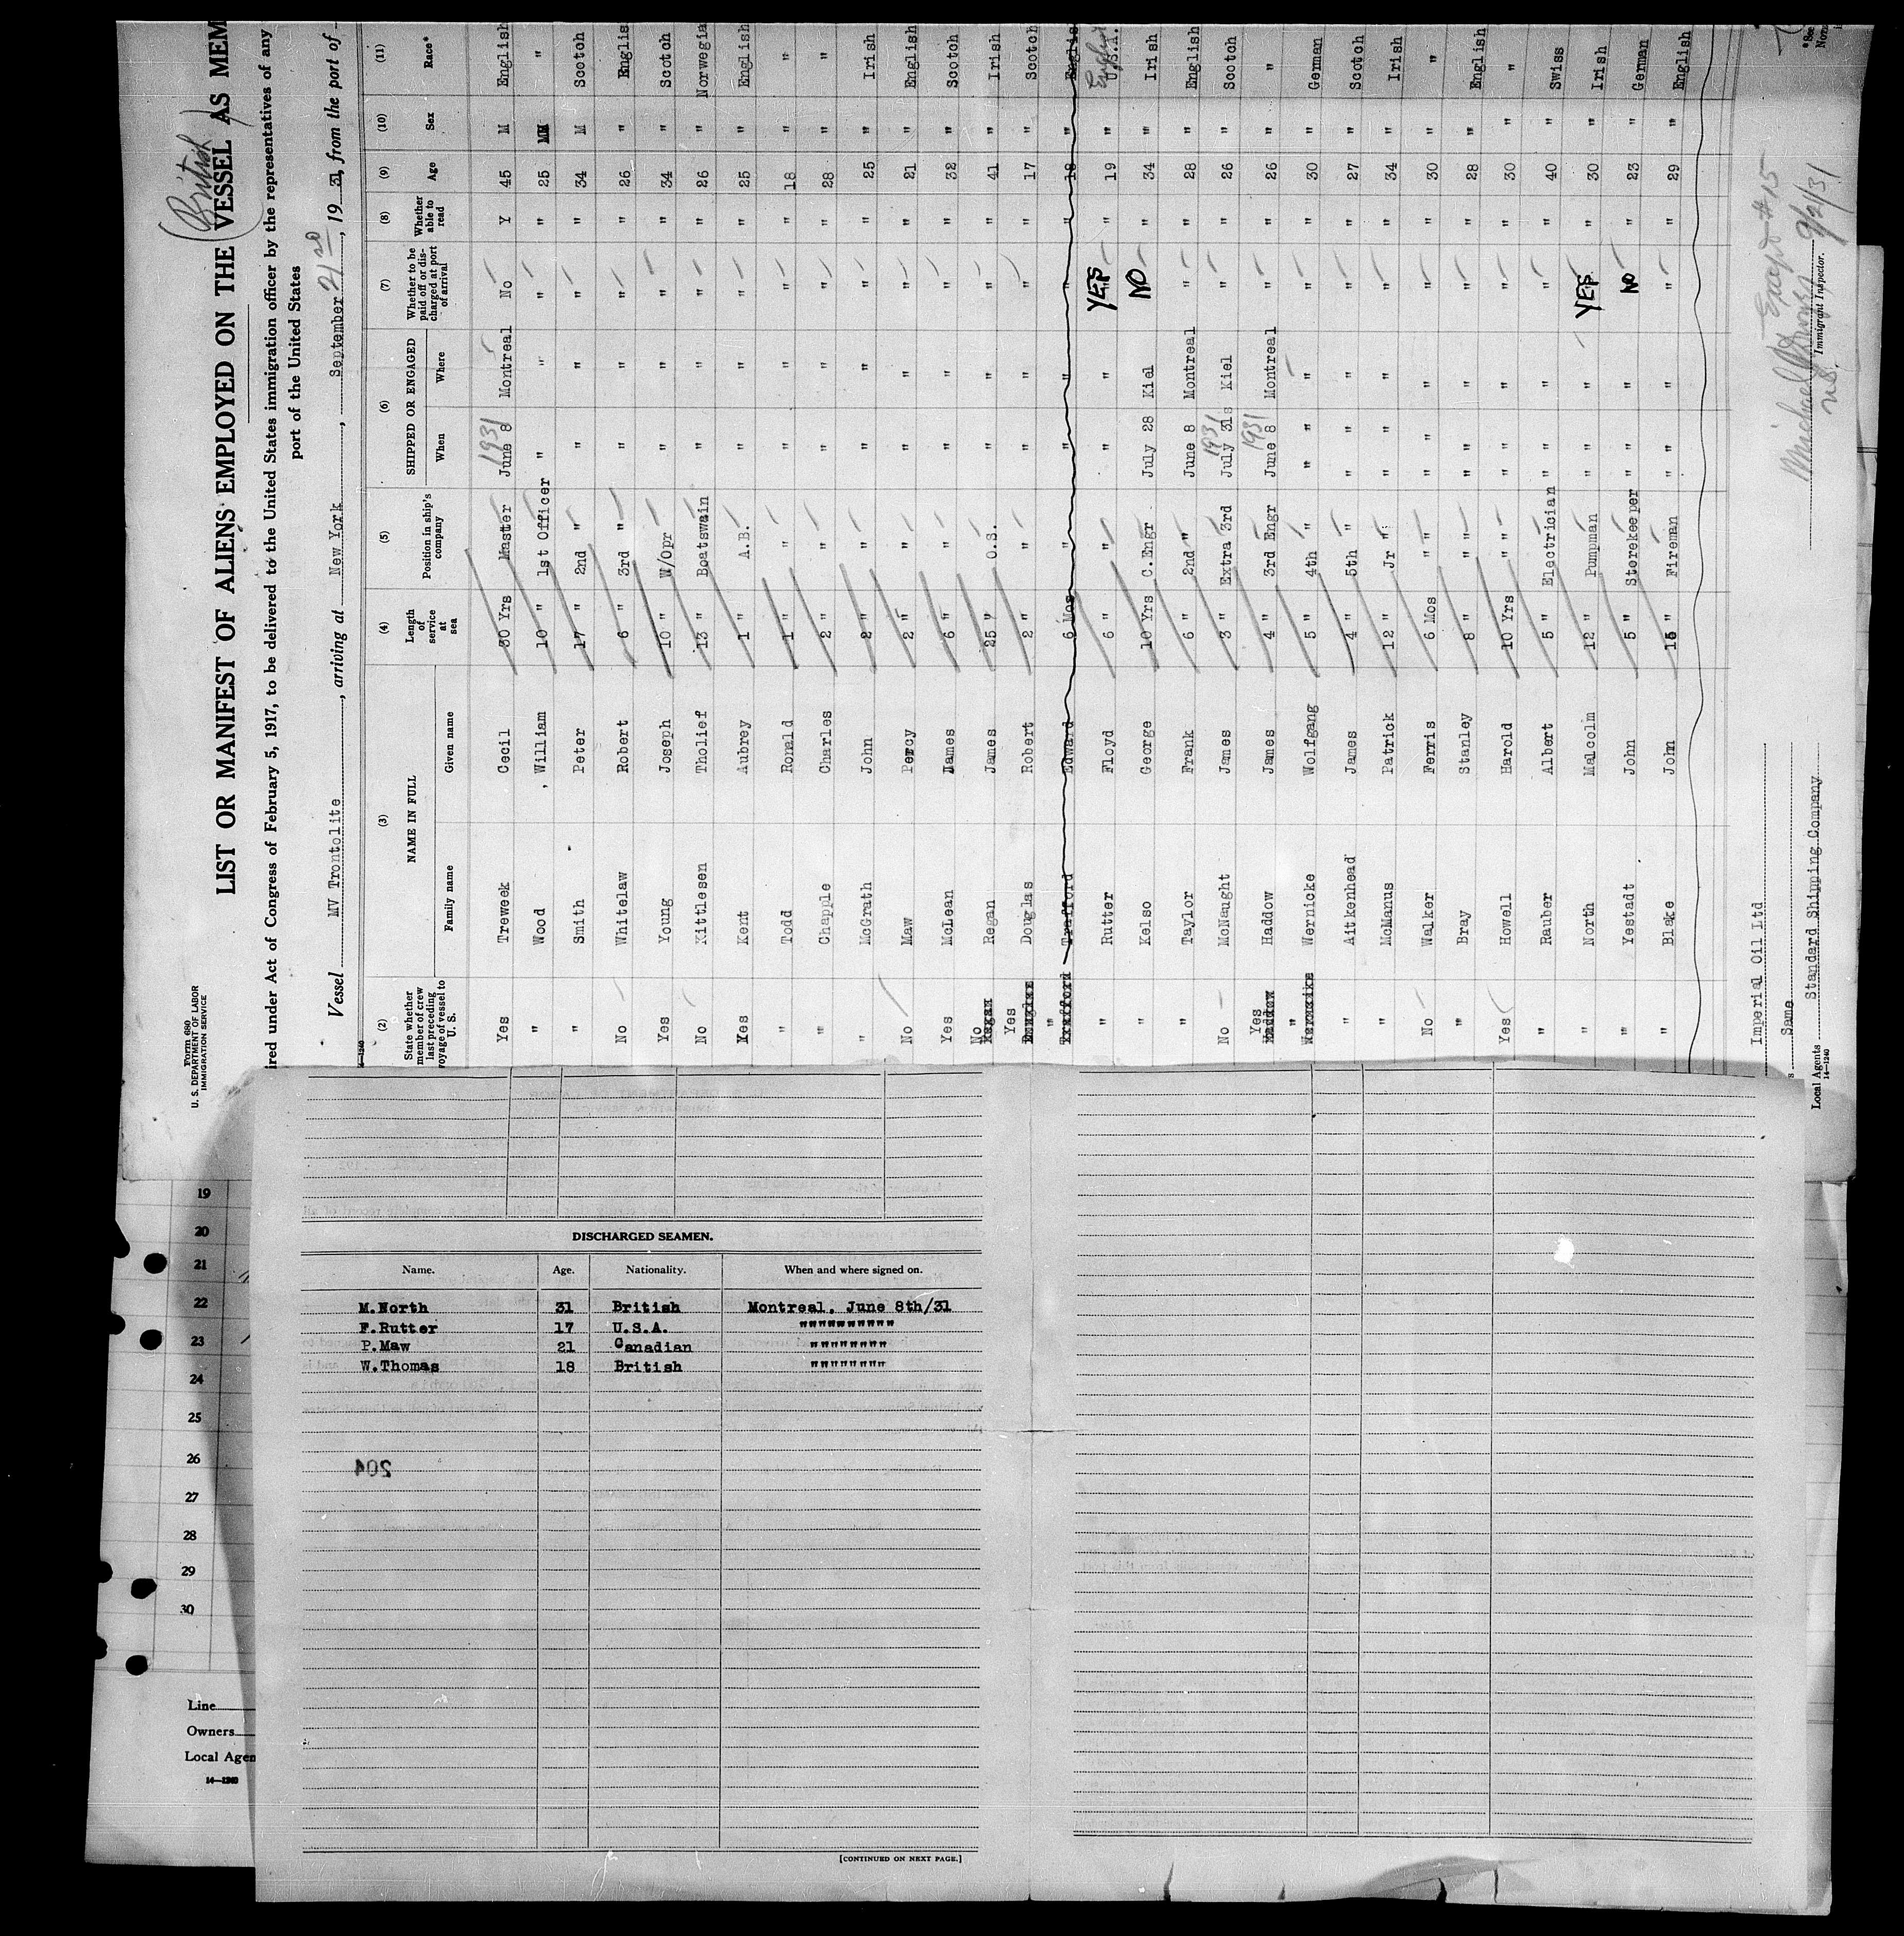 Form 680
U. S. DEPARTMENT OF LABOR
IMMIGRATION SERVICE
(British)
LIST OR MANIFEST OF ALIENS EMPLOYED ON THE VESSEL AS MEM
ired under Act of Congress of February 5, 1917, to be delivered to the United States immigration officer by the representatives of any
port of the United States
Vessel MV Trontolite, arriving at New York, September 21st, 19 31, from the port of
14-1240
(2) (3) (4) (5) (6) (7) (8) (9) (10) (11)
State whether member of crew last preceding voyage of vessel to U. S. NAME IN FULL Family name Given name Length of service at sea Position in ship's company SHIPPED OR ENGAGED When Where Whether to be paid off or discharged at port of arrival Whether able to read Age Sex Race*
1931
Yes Treweek Cecil 30 Yrs Master June 8 Montreal No Y 45 M English
" Wood , William 10 " 1st Officer " " " " 25 MM "
" Smith Peter 17 " 2nd " " " " " 34 M Scotch
No Whitelaw Robert 6 " 3rd " " " " " 26 " Englis
Yes Young Joseph 10 " W/Opr " " " " 34 " Scotch
No Kittlesen Tholief 13 " Boatswain " " " " 26 " Norwegia
Yes Kent Aubrey 1 " A.B. " " " " 25 " English
" Todd Ronald 1 " " " " " " 18 " "
" Chapple Charles 2 " " " " " " 28 " "
" McGrath John 2 " " " " " " 25 " Irish
No Maw Percy 2 " " " " " " 21 " English
Yes McLean James 6 " " " " " " 32 " Scotch
No Regan James 25 " O.S. " " " " 41 " Irish
Yes Douglas Robert 2 " " " " " " 17 " Scotch
" Trafford Edward 6 Mos " " " " " 18 " Englis
" Rutter Floyd 6 " " " " YES " 19 " English U.S.A.
" Kelso George 10 Yrs C.Engr July 28 Kiel NO " 34 " Irish
" Taylor Frank 6 " 2nd " June 8 Montreal " " 28 " English
1931
No McNaught James 3 " Extra 3rd July 31s Kiel " " 26 " Scotch
1931
Yes Haddow James 4 " 3rd Engr June 8 Montreal " " 26 " "
" Wernicke Wolfgang 5 " 4th " " " " " 30 " German
" Aitkenhead James 4 " 5th " " " " " " 27 " Scotch
" McManus Patrick 12 " Jr " " " " " " 34 " Irish
No Walker Ferris 6 Mos " " " " " " " 30 " "
" Bray Stanley 8 " " " " " " " " 28 " English
Yes Howell Harold 10 Yrs " " " " " " " 30 " "
" Rauber Albert 5 " Electrician " " " " " 40 " Swiss
" North Malcolm 12 " Pumpman " " " YES " 30 " Irish
" Yestadt John 5 " Storekeeper " " " NO " 23 " German
" Blake John 15 " Fireman " " " " " 29 " English
Imperial Oil Ltd
Same
Local Agents Standard Shipping Company
14-1240
Except #15
9/21/31
Immigrant Inspector.
19
20
21
22
23
24
25
26
27
28
29
30
Line
Owners
Local Agen
14-1240
DISCHARGED SEAMEN.
Name. Age. Nationality. When and where signed on.
M.North 31 British Montreal, June 8th/31
F.Rutter 17 U.S.A. """"""""""
P.Maw 21 Canadian """"""""
W.Thomas 18 British """"""""
204
[CONTINUED ON NEXT PAGE.]